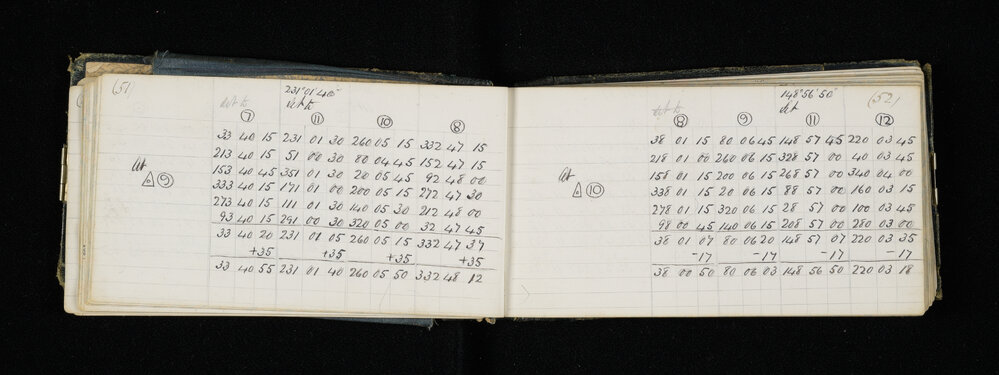 (51)
231°01'40"
set to set to
⑦ ⑪ ⑩ ⑧
33 40 15 231 01 30 260 05 15 332 47 15
213 40 15 51 00 30 80 04 45 152 47 15
153 40 45 351 01 30 20 05 45 92 48 00
at
△ ⑨
333 40 15 171 01 00 200 05 15 272 47 30
273 40 15 111 01 30 140 05 30 212 48 00
93 40 15 291 00 30 320 05 00 32 47 45
33 40 20 231 01 05 260 05 15 332 47 37
+35 +35 +35 +35
33 40 55 231 01 40 260 05 50 332 48 12
(52)
148°56'50"
set to set
⑧ ⑨ ⑪ ⑫
38 01 15 80 06 45 148 57 45 220 03 45
218 01 00 260 06 15 328 57 00 40 03 45
158 01 15 200 06 15 268 57 00 340 04 00
at
△ ⑩
338 01 15 20 06 15 88 57 00 160 03 15
278 01 15 320 06 15 28 57 00 100 03 45
98 00 45 140 06 15 208 57 00 280 03 00
38 01 07 80 06 20 148 57 07 220 03 35
-17 -17 -17 -17
38 00 50 80 06 03 148 56 50 220 03 18